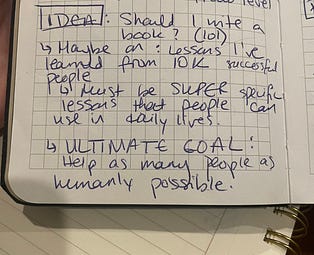 level
IDEA: Should I write a
book? (lol)
↳ Maybe on: Lessons I've
learned from 10K successful
people
↳ Must be SUPER specific
lessons that people can
use in daily lives.
↳ ULTIMATE GOAL:
Help as many people as
humanly possible.